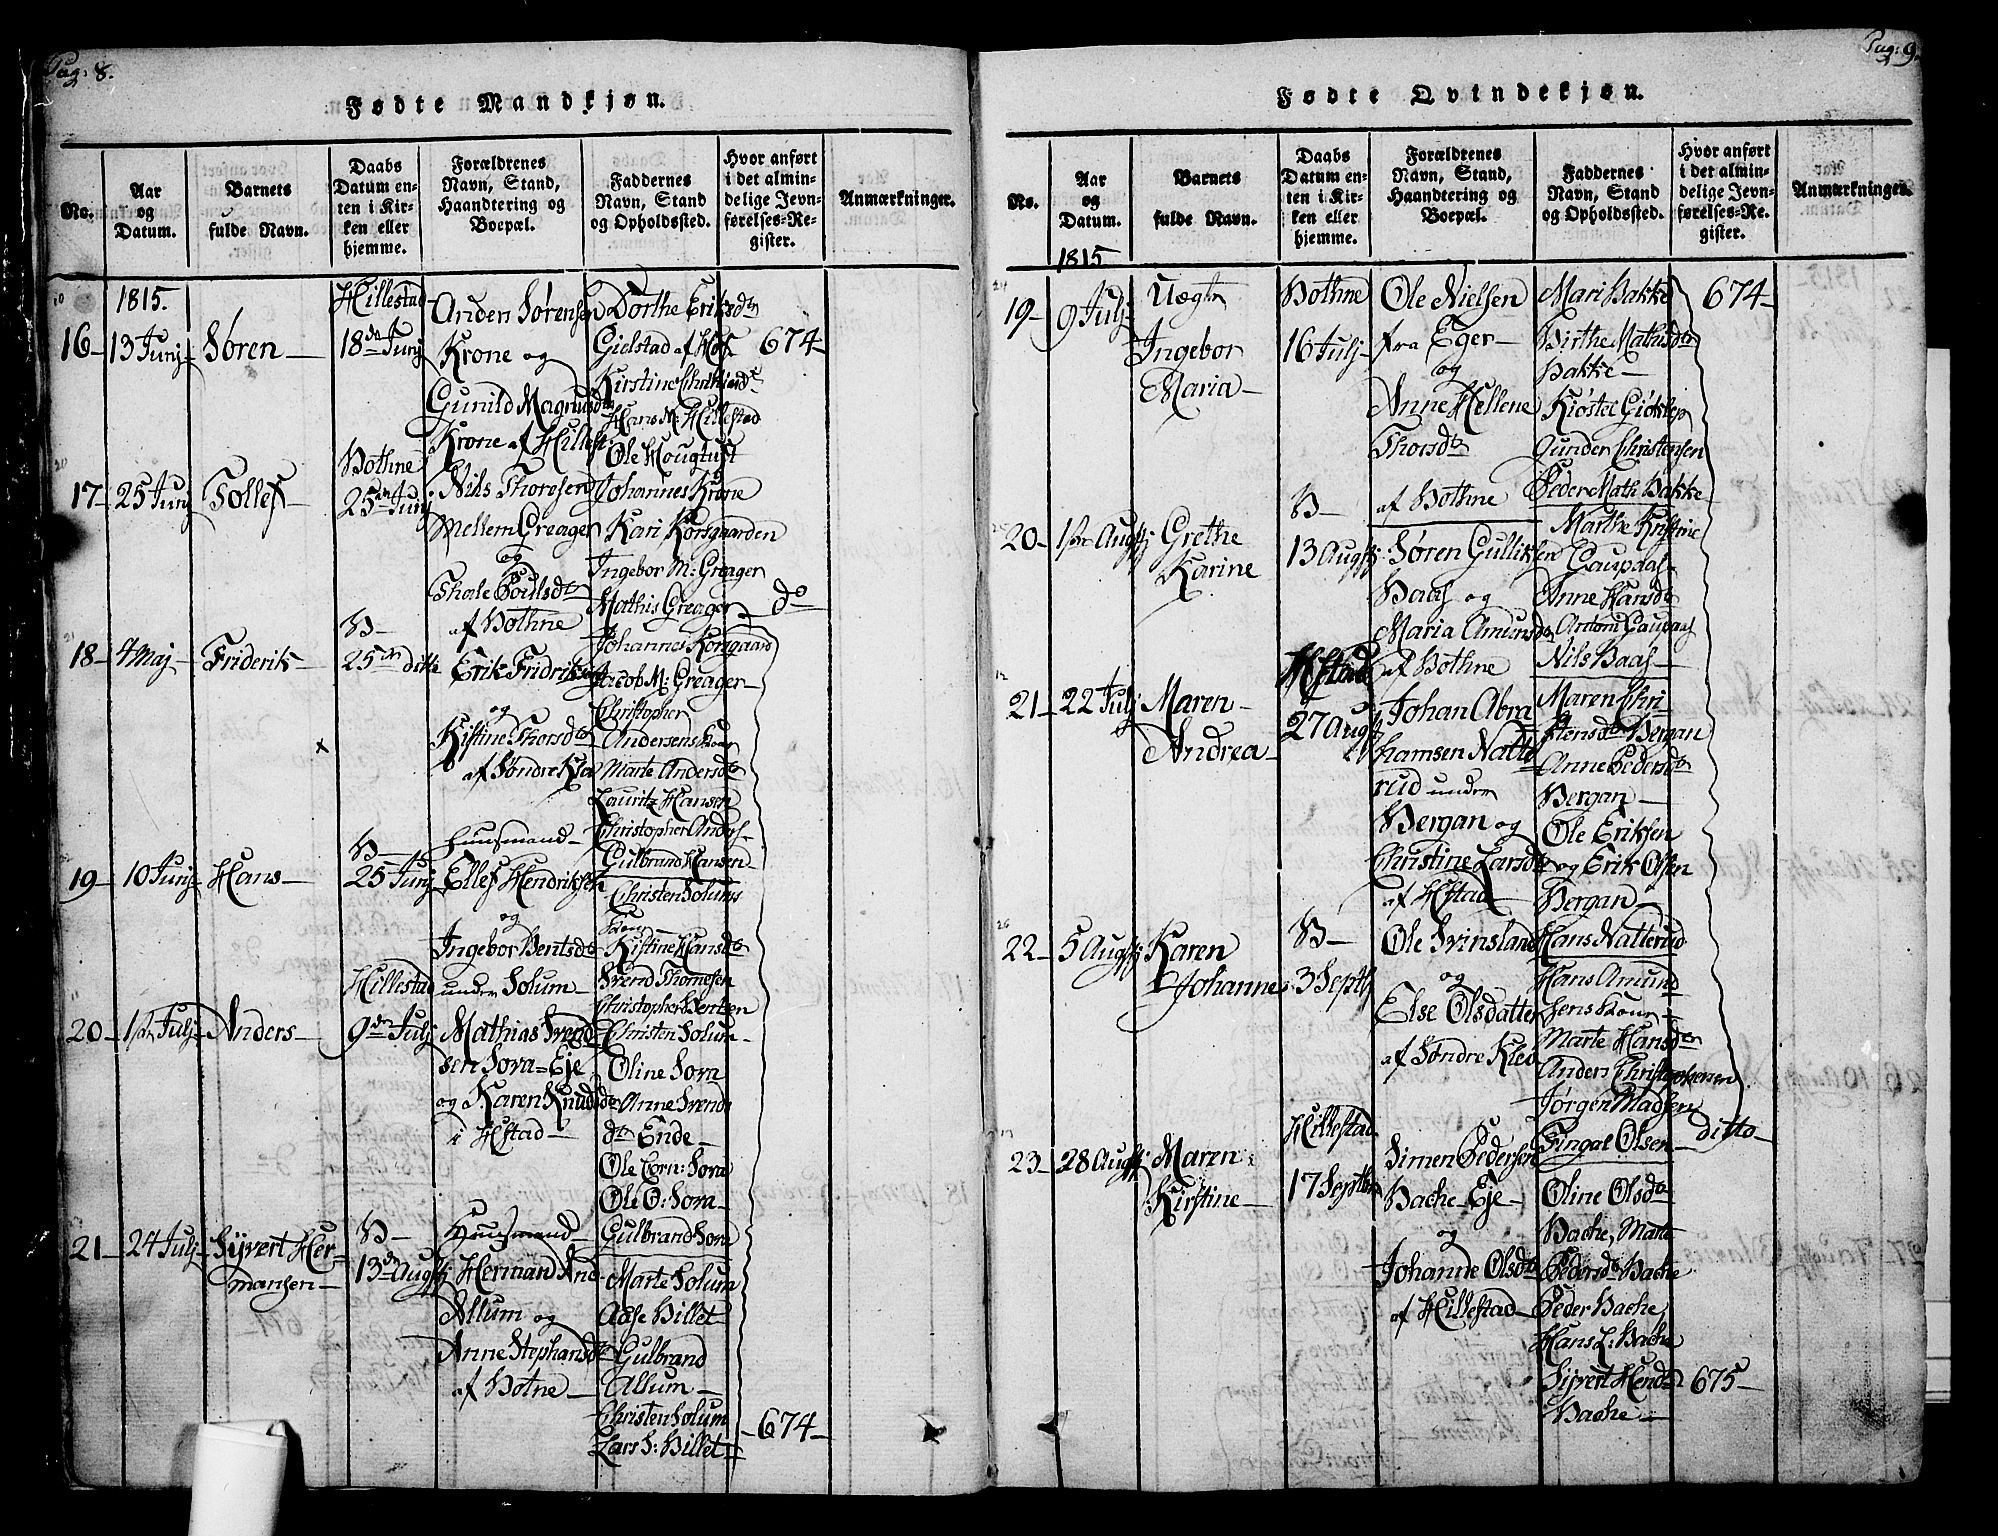 Pag: 8.
Fødte Mandkjøn.
No.
Aar
og
Datum.
Barnets
fulde Navn.
Daabs
Datum en-
ten i Kir-
ken eller
hjemme.
Forældrenes
Navn, Stand,
Haandtering og
Boepæl.
Faddernes
Navn, Stand
og Opholdssted.
Hvor anført
i det almin-
delige Jevn-
førelses-Re-
gister.
Anmærkninger.
1815.
16 - 13 Junj
Søren -
Hillestad
18de Junj
Anders Sørensen
Krone og
Gunild Magnusdtr
Krone af Hillest
Dorthe Eriksdtr
Gielstad af Hof
Kirstine
Hans M: Hillestad
Ole Hougtust
674 -
17 - 25 Junj
Tollef -
Bothne
25de Junj
Nils Thoresen
Mellem Greager
og
Thale
af Bothne
Johannes Krone
Kari Korsgaarden
Ingebor M: Greager
Mathis Greager
Johannes Korsgaard
Jacob M: Greager -
do
18 - 4 Maj -
Friderik -
B -
25de ditto
Erik Fridriksen
og
Kistine Thorsdtr
af Søndre Klev
Christopher
Andersens Kone
Marte Andersdtr
Lauritz Hansen
Christopher Anders
Gulbrand Hansen -
19 - 10 Junj -
Hans -
B -
25 Junj
Huusmand -
Ellef Hendriksen
og
Ingebor Bentsdtr
under Solum -
Christen Solums
Kone -
Kistine Hansdtr
Svend Thomesen
Christopher Bentsen
Christen Solum -
20 - 1ste Julj -
Anders -
Hillestad
9de Julj
Mathias Svend
sen Sora = Eje
og Karen Knudsdtr
i Hstad -
Oline Sora
Anne Svends
dtr Ende -
Ole Corn: Sora
Ole O: Sora -
Gulbrand Sora
21 - 24 Julj -
Syvert Her-
mansen -
B -
13de Augst
Huusmand -
Herman And
Allum og
Anne Stephansdtr
af Botne -
Marte Solum
Aase Billet
Gulbrand
Allum -
Christen Solum
Lars S: Billet
- 674 -
Pag: 9.
Fødte Qvindekjøn.
No.
Aar
og
Datum.
Barnets
fulde Navn.
Daabs
Datum en-
ten i Kir-
ken eller
hjemme.
Forældrenes
Navn, Stand,
Haandtering og
Boepæl.
Faddernes
Navn, Stand
og Opholdssted.
Hvor anført
i det almin-
delige Jevn-
førelses-Re-
gister.
Anmærkninger.
1815
19 - 9 Julj
Uægte
Ingebor
Maria -
Bothne
16 Julj -
Ole Nielsen
fra Eger -
og
Anne Hellene
Thorsdtr
af Bothne
Mari Bakke
Birthe Mathisdtr
Bakke -
Kiøstel
Gunder Christensen
Peder Math: Bakke
674 -
20 - 1ste Augst
Grethe
Karine
B -
13 Augst
Søren Gulliksen
Baas og
Maria Amunsdtr
af Bothne
Marthe Kristine
Gaupaas -
Anne Hansdtr
Antoni Gaupaas
Nils Baas -
21 - 22 Julj
Maren -
Andrea -
Hstad
27 Augst
Johan Abra
hamsen Natte
rud under
Bergan og
Christine Larsdtr
af Hstad -
Maren Chri-
stensdtr Bergan
Anne Pedersdtr
Bergan -
Ole Eriksen
og Erik Olsen
Bergan -
Hans Natterud
22 - 5 Augst
Karen
Johanne
B -
3 Septb
Ole Svinsland
og
Else Olsdatter
af Søndre Klev
Hans Amund
sens Kone -
Marte Hansdtr
Anders Christophersen
Jørgen Madsen
Fingal Olsen -
ditto -
23 - 28 Augst
Maren
Kirstine -
Hillestad
17 Septbr
Simen Pedersen
Bache - Eje -
og
Johanne Olsdtr
af Hillestad -
Oline Olsdtr
Bache, Marte
Pedersdtr Bache
Peder Bache
Hans L: Bache
Syvert Hend
Bache -
675 -